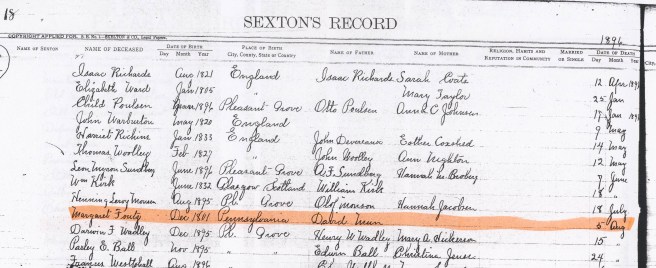 18
SEXTON'S RECORD
COPYRIGHT APPLIED FOR, S. No. 1.—SKELTON & CO., Legal Papers.
1896
NAME OF SEXTON NAME OF DECEASED DATE OF BIRTH PLACE OF BIRTH NAME OF FATHER NAME OF MOTHER RELIGION, HABITS AND MARRIED DATE OF DEATH
Day Month Year City, County, State or Country REPUTATION IN COMMUNITY OR SINGLE Day Month Year
Isaac Richards Aug 1821 England Isaac Richards Sarah Coats 12 Apr
Elizabeth Ward Jan 1805 " Mary Taylor 25 Jan
Child Poulsen 1896 Pleasant Grove Otto Poulsen Anna C Johnson 17 Jan
John Warburton May 1820 England 9 May
Harriet Richins Jan 1833 England John Devereaux Esther 14 May
Thomas Woolley Feb 1827 " John Woolley Ann 12 May
Leon Myron Sundberg June 1896 Pleasant Grove A F Sundberg Hannah 7 June
Wm Kirk June 1832 Glasgow Scotland William Kirk 18 "
Henning Leroy Monson Aug 1895 Pl. Grove Olof Monson Hannah Jacobsen 18 July
Margaret Fouty Dec 1801 Pennsylvania David 5 Aug
Darwin F Wadley Dec 1895 Pl. Grove Henry W Wadley Mary A 15 "
Parley E. Ball Nov 1895 " Edwin Ball Christina Jense 24 "
Frances Westphall Aug 1896